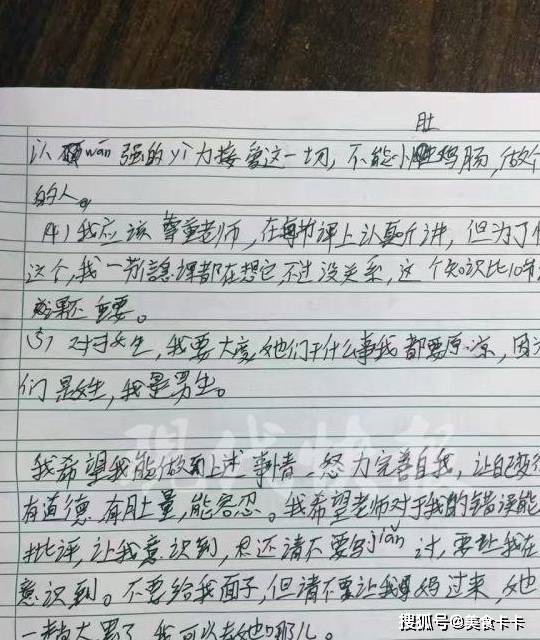 肚
以 wán 强的 yì 力接受这一切，不能小 鸡肠，做个
的人。
(4) 我应该尊重老师，在每节课上认真听讲，但为了
这个，我一节 课都在想它，不过没关系，这个知识比10节
重要。
(5) 对于女生，我要大度，她们干什么事我都要原凉，因为
们是女生，我是男生。
现代快报
我希望我能做到上述事情，努力完善自我，让自己变得
有道德 有肚量，能容忍。我希望老师对于我的错误能
批评，让我意识到，但还请不要写jiǎn 讨，要让我在
意识到。不要给我面子，但请不要让我妈妈过来，她
太累了 我可以去她哪儿。
搜狐号@美食卡卡